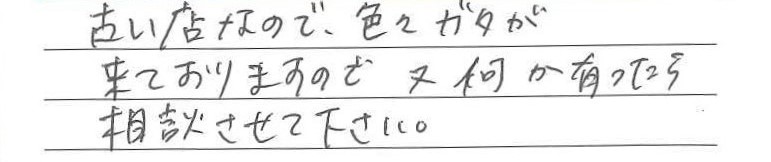 古い店なので、色々ガタが
来ておりますので 又 何か有ったら
相談させて下さい。